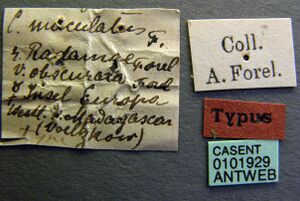 C. maculatus F.
r. Radamae Forel
v. obscurata Forel
Insel Europa
Madagascar
(Voeltzkow)
Coll.
A. Forel.
Typus
CASENT
0101929
ANTWEB